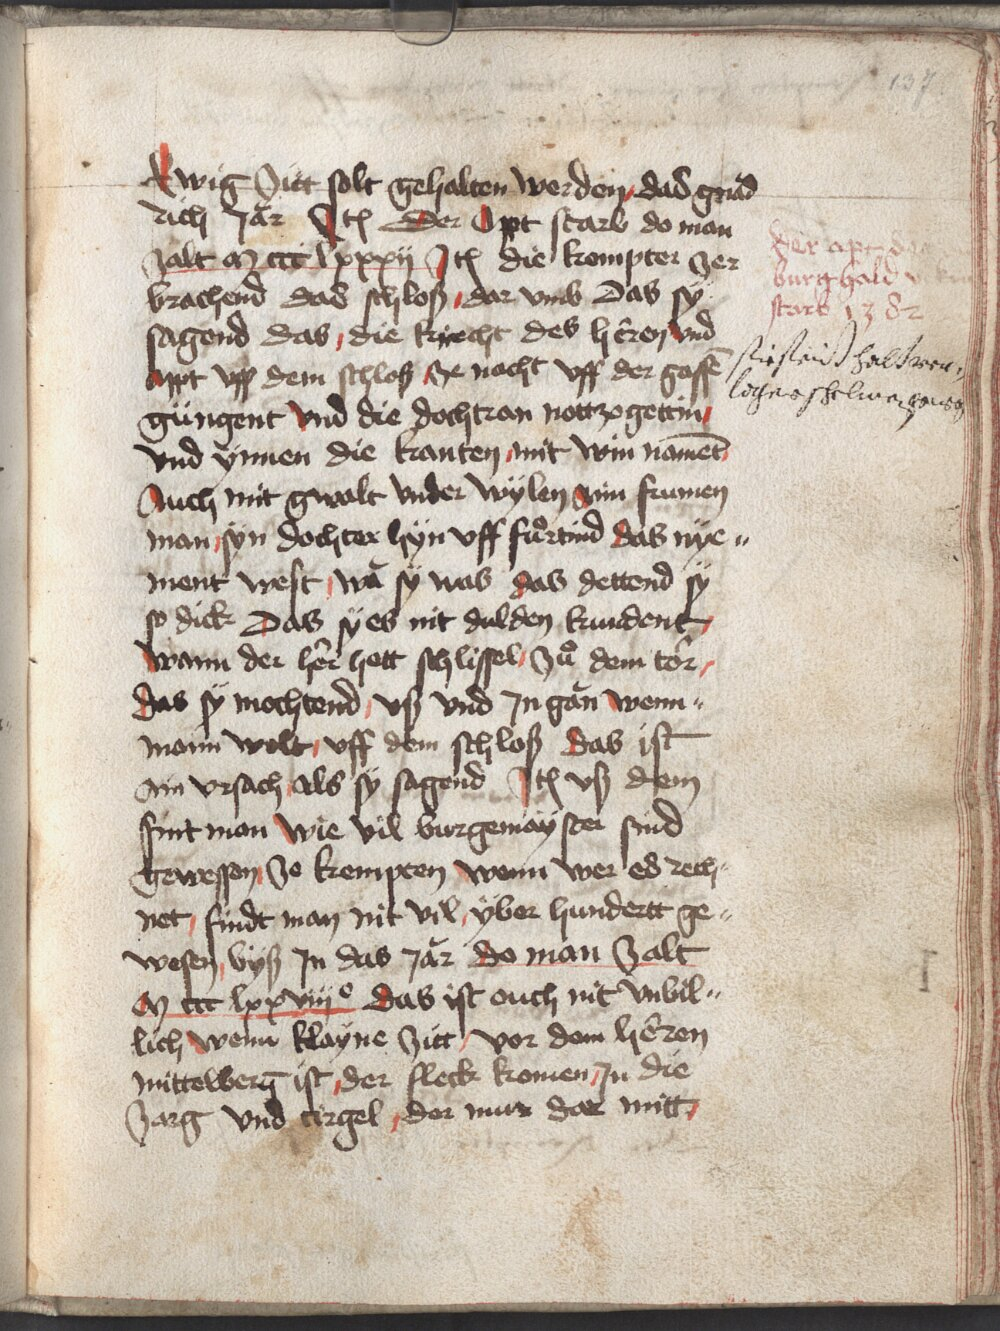 137
Ewig Zitt solt gehalten werden, das gnad
rich Jar Itē Der Apt starb do man
Zalt M ccc lxxxij Itē die kempter Zer
brachend das schloß, dar vmb Das sÿ
sagend das, die knecht des hẽren vnd
appt vff dem schloß, Ze nacht vff der gassē
güngent vnd die dochtran nottzogettin,
vnd ÿnnen die kranten, mit win namēt,
Auch mit gwalt vnder wÿlen, aim frumen
man, sÿn dochter hÿn vff fůrtind das nÿe„
ment west, wa sÿ was das dettend sÿ
so dick Das sÿ es nit dulden kundent,
wann der hẽr hett schlissel, Zů dem tôr,
das sÿ mochtend, vß vnd In gan wenn„
mann wolt, vff dem schloß das ist
ain vrsach, als sÿ sagend Itē vß dem
fint man wie vil burgermaÿster sind
gewessen, Ze kempten wenn wer es rech„
net, findt man nit vil, ÿber hundertt ge„
wesen, byß In das Jar do man Zalt
M ccc lxxviiij° das ist ouch nit vnbil„
lich, wenn klayne Zitt, vor dem hẽren
mittelberg ist, der fleck komen, In die
Zarg vnd cirgel, der mur dar mitt,
der apt
burghald
starb 1382